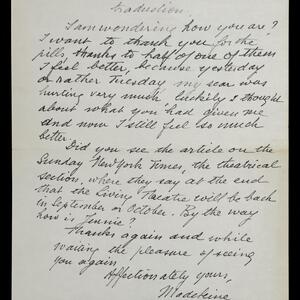 traduction.
I am wondering how you are?
I want to thank you for the
pills, thanks to half of one of them
I feel better, because yesterday
or rather Tuesday my scar was
hurting very much, luckily I thought
about what you had given me
and now I still feel so much
better.
Did you see the article on the
Sunday New York Times, the theatrical
section, where they say at the end
that the Living Theatre will be back
in September or October. By the way
how is Jennie?
Thanks again and while
waiting the pleasure of seeing
you again
Affectionately yours,
Madeleine